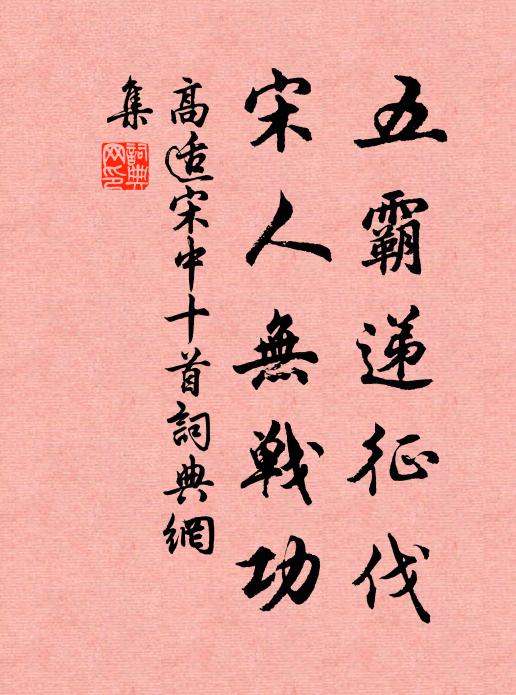 五霸递征伐
宋人無戦功
高适宋中十首詞典網
集
詞典
网印